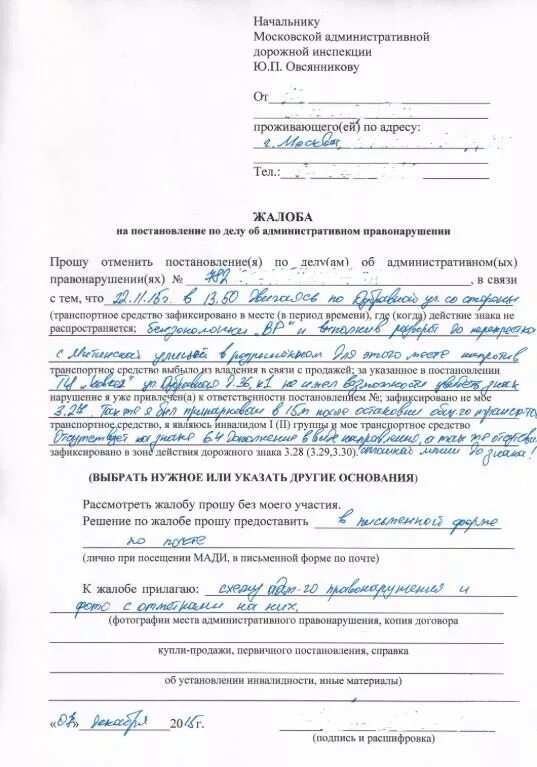 Начальнику
Московской административной
дорожной инспекции
Ю.П. Овсянникову
От
проживающего(ей) по адресу:
г. Москва
Тел.:
ЖАЛОБА
на постановление по делу об административном правонарушении
Прошу отменить постановление(я) по делу(ам) об административном(ых)
правонарушении(ях) № 782 , в связи
с тем, что 22.11.15г. в 13.50 двигаясь по Дубравной ул. со стороны
(транспортное средство зафиксировано в месте (в период времени), где (когда) действие знака не
распространяется; бензоколонки "BP" и выполнив разворот до перекрестка
с Митинской улицей в разрешённом для этого месте напротив
транспортное средство выбыло из владения в связи с продажей; за указанное в постановлении
ТЦ ул. Дубравная д.36, к1 не имел возможности увидеть знак
нарушение я уже привлечен(а) к ответственности постановлением №; зафиксировано не мое
3.27 Так же я был припаркован в 15м после остановки общ-го транспорта
транспортное средство, я являюсь инвалидом I (II) группы и мое транспортное средство
Отсутствует на знаке 6.4 дополнение в виде направлению, а так же
зафиксировано в зоне действия дорожного знака 3.28 (3.29,3.30). линии до знака!
(ВЫБРАТЬ НУЖНОЕ ИЛИ УКАЗАТЬ ДРУГИЕ ОСНОВАНИЯ)
Рассмотреть жалобу прошу без моего участия.
Решение по жалобе прошу предоставить в письменной форме
по почте
(лично при посещении МАДИ, в письменной форме по почте)
К жалобе прилагаю: схему адм-го правонарушения и
фото с отметками на них.
(фотографии места административного правонарушения, копия договора
купли-продажи, первичного постановления, справка
об установлении инвалидности, иные материалы)
«07» декабря 2015г.
(подпись и расшифровка)